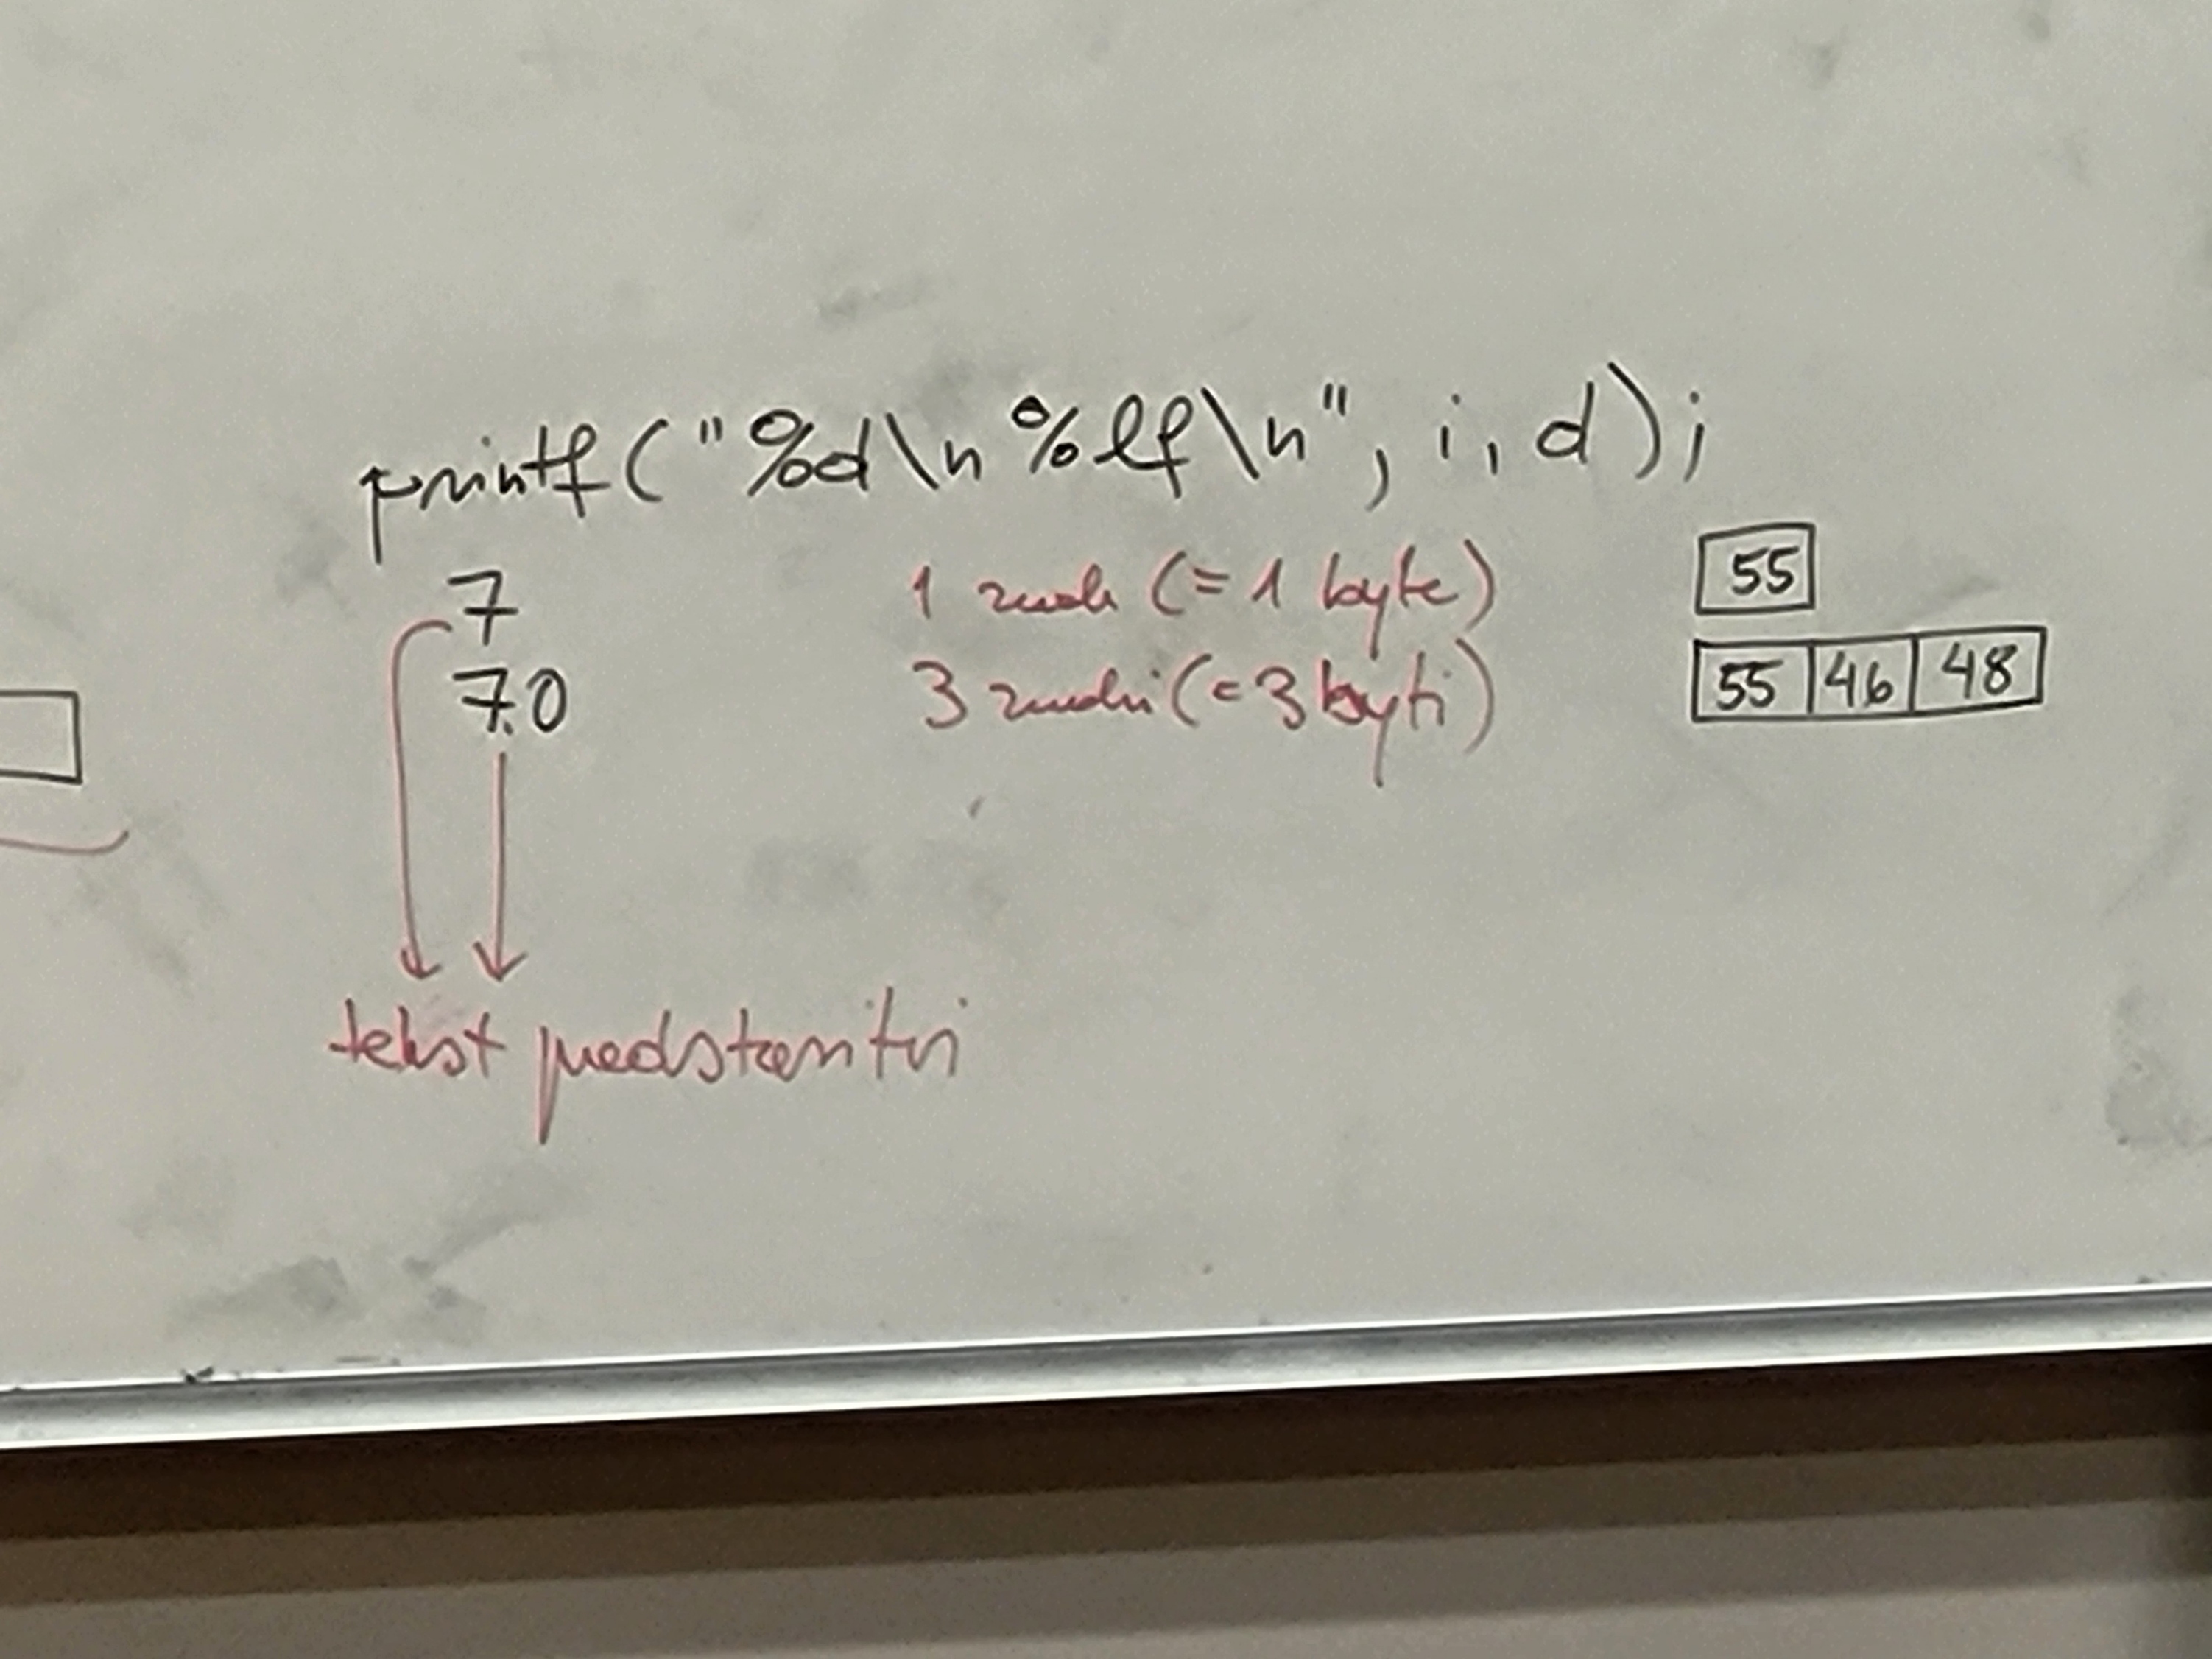 printf("%d\n%lf\n", i, d);
7 1 znak (= 1 byte) 55
7.0 3 znaki (= 3 byti) 55 46 48
tekst predstavitvi